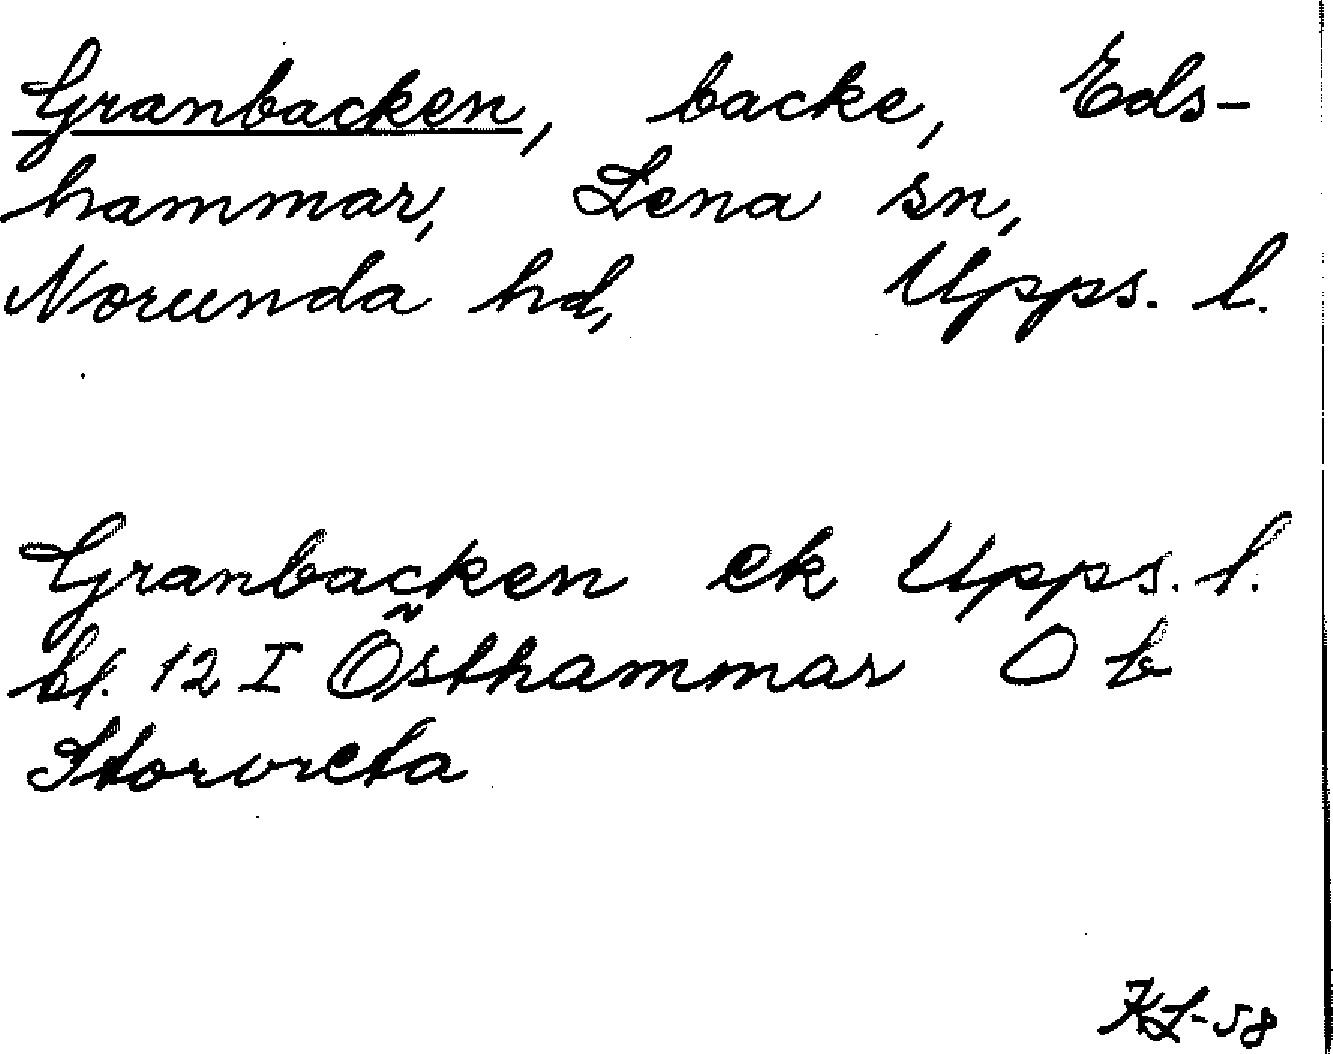 Granbacken, backe, Eds-
hammar, Lena sn,
Norunda hd, Upps. l.
Granbacken ek Upps. l.
bl. 12 I Östhammar O b
Storvreta
KL-58